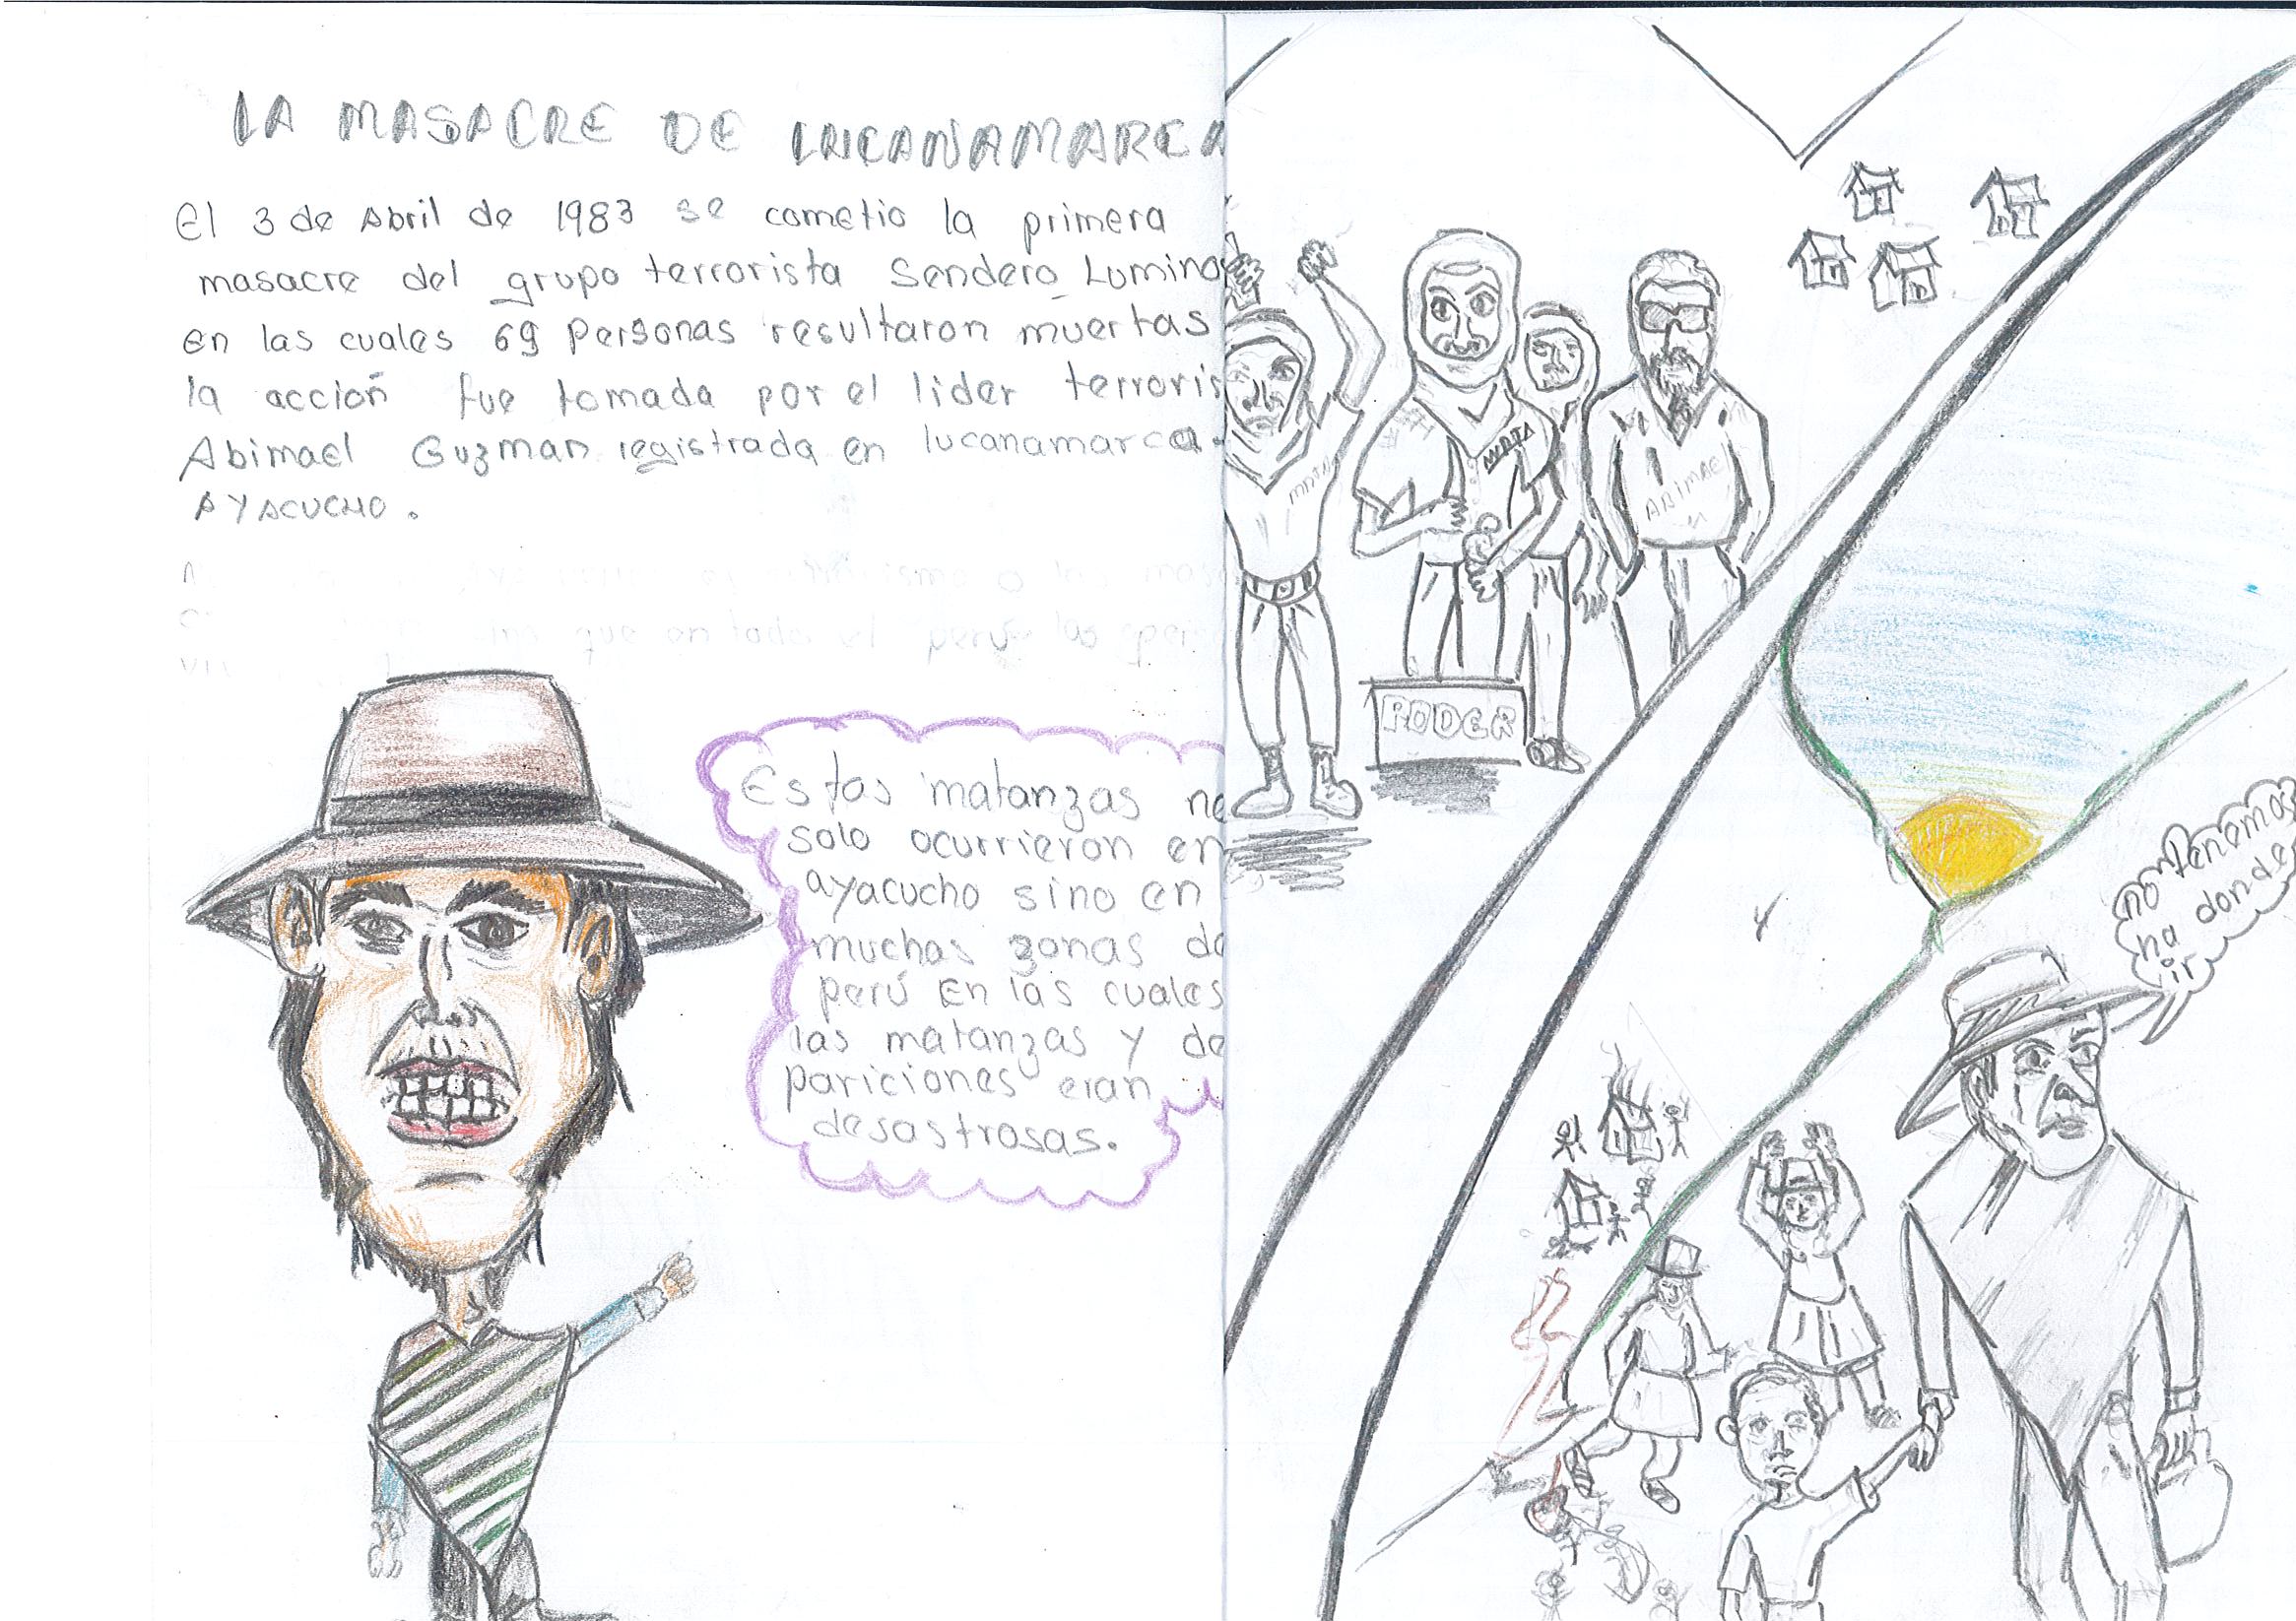 LA MASACRE DE LUCANAMARCA
El 3 de Abril de 1983 se cometio la primera
masacre del grupo terrorista Sendero Lumino
en las cuales 69 Personas resultaron muertas
la acción fue tomada por el lider terroris
Abimael Guzman registrada en lucanamarca -
AYACUCHO.
que en todo el perú las
Estas matanzas no
solo ocurrieron en
ayacucho sino en
muchas zonas de
perú En las cuales
las matanzas y de
pariciones eran
desastrosas.
MRTA
ABIMAEL
PODER
no tenemos
ha donde
ir